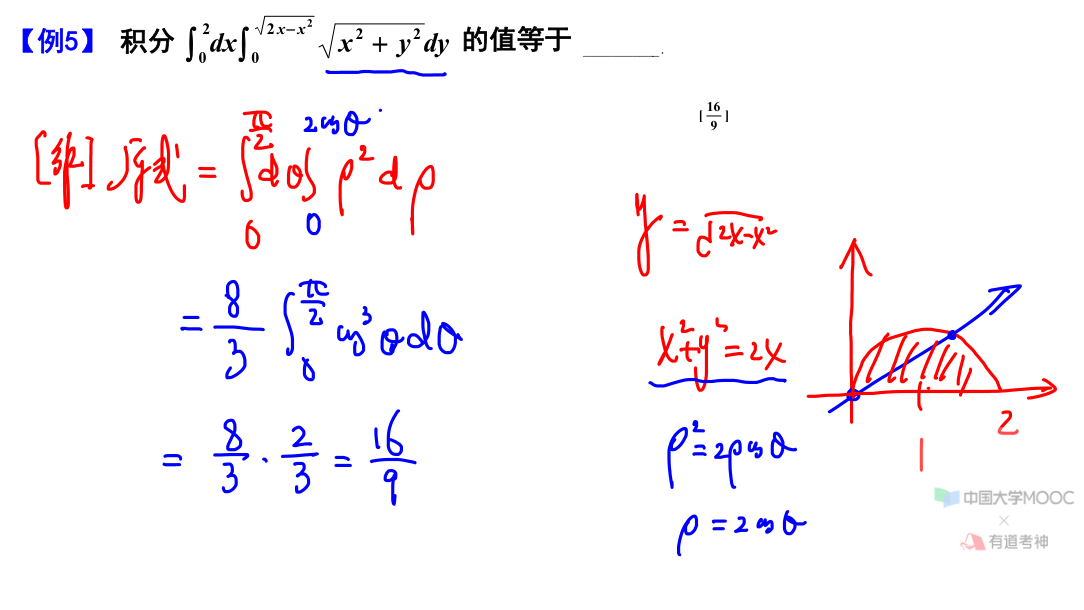 【例5】 积分 ∫₀² dx ∫₀^√(2x−x²) √(x² + y²) dy 的值等于 ________.
[16/9]
[解] 原式 = ∫₀^(π/2) dθ ∫₀^(2cosθ) ρ² dρ
= 8/3 ∫₀^(π/2) cos³θ dθ
= 8/3 · 2/3 = 16/9
y = √(2x−x²)
x²+y² = 2x
ρ² = 2ρcosθ
ρ = 2cosθ
1 2
中国大学MOOC
×
有道考神